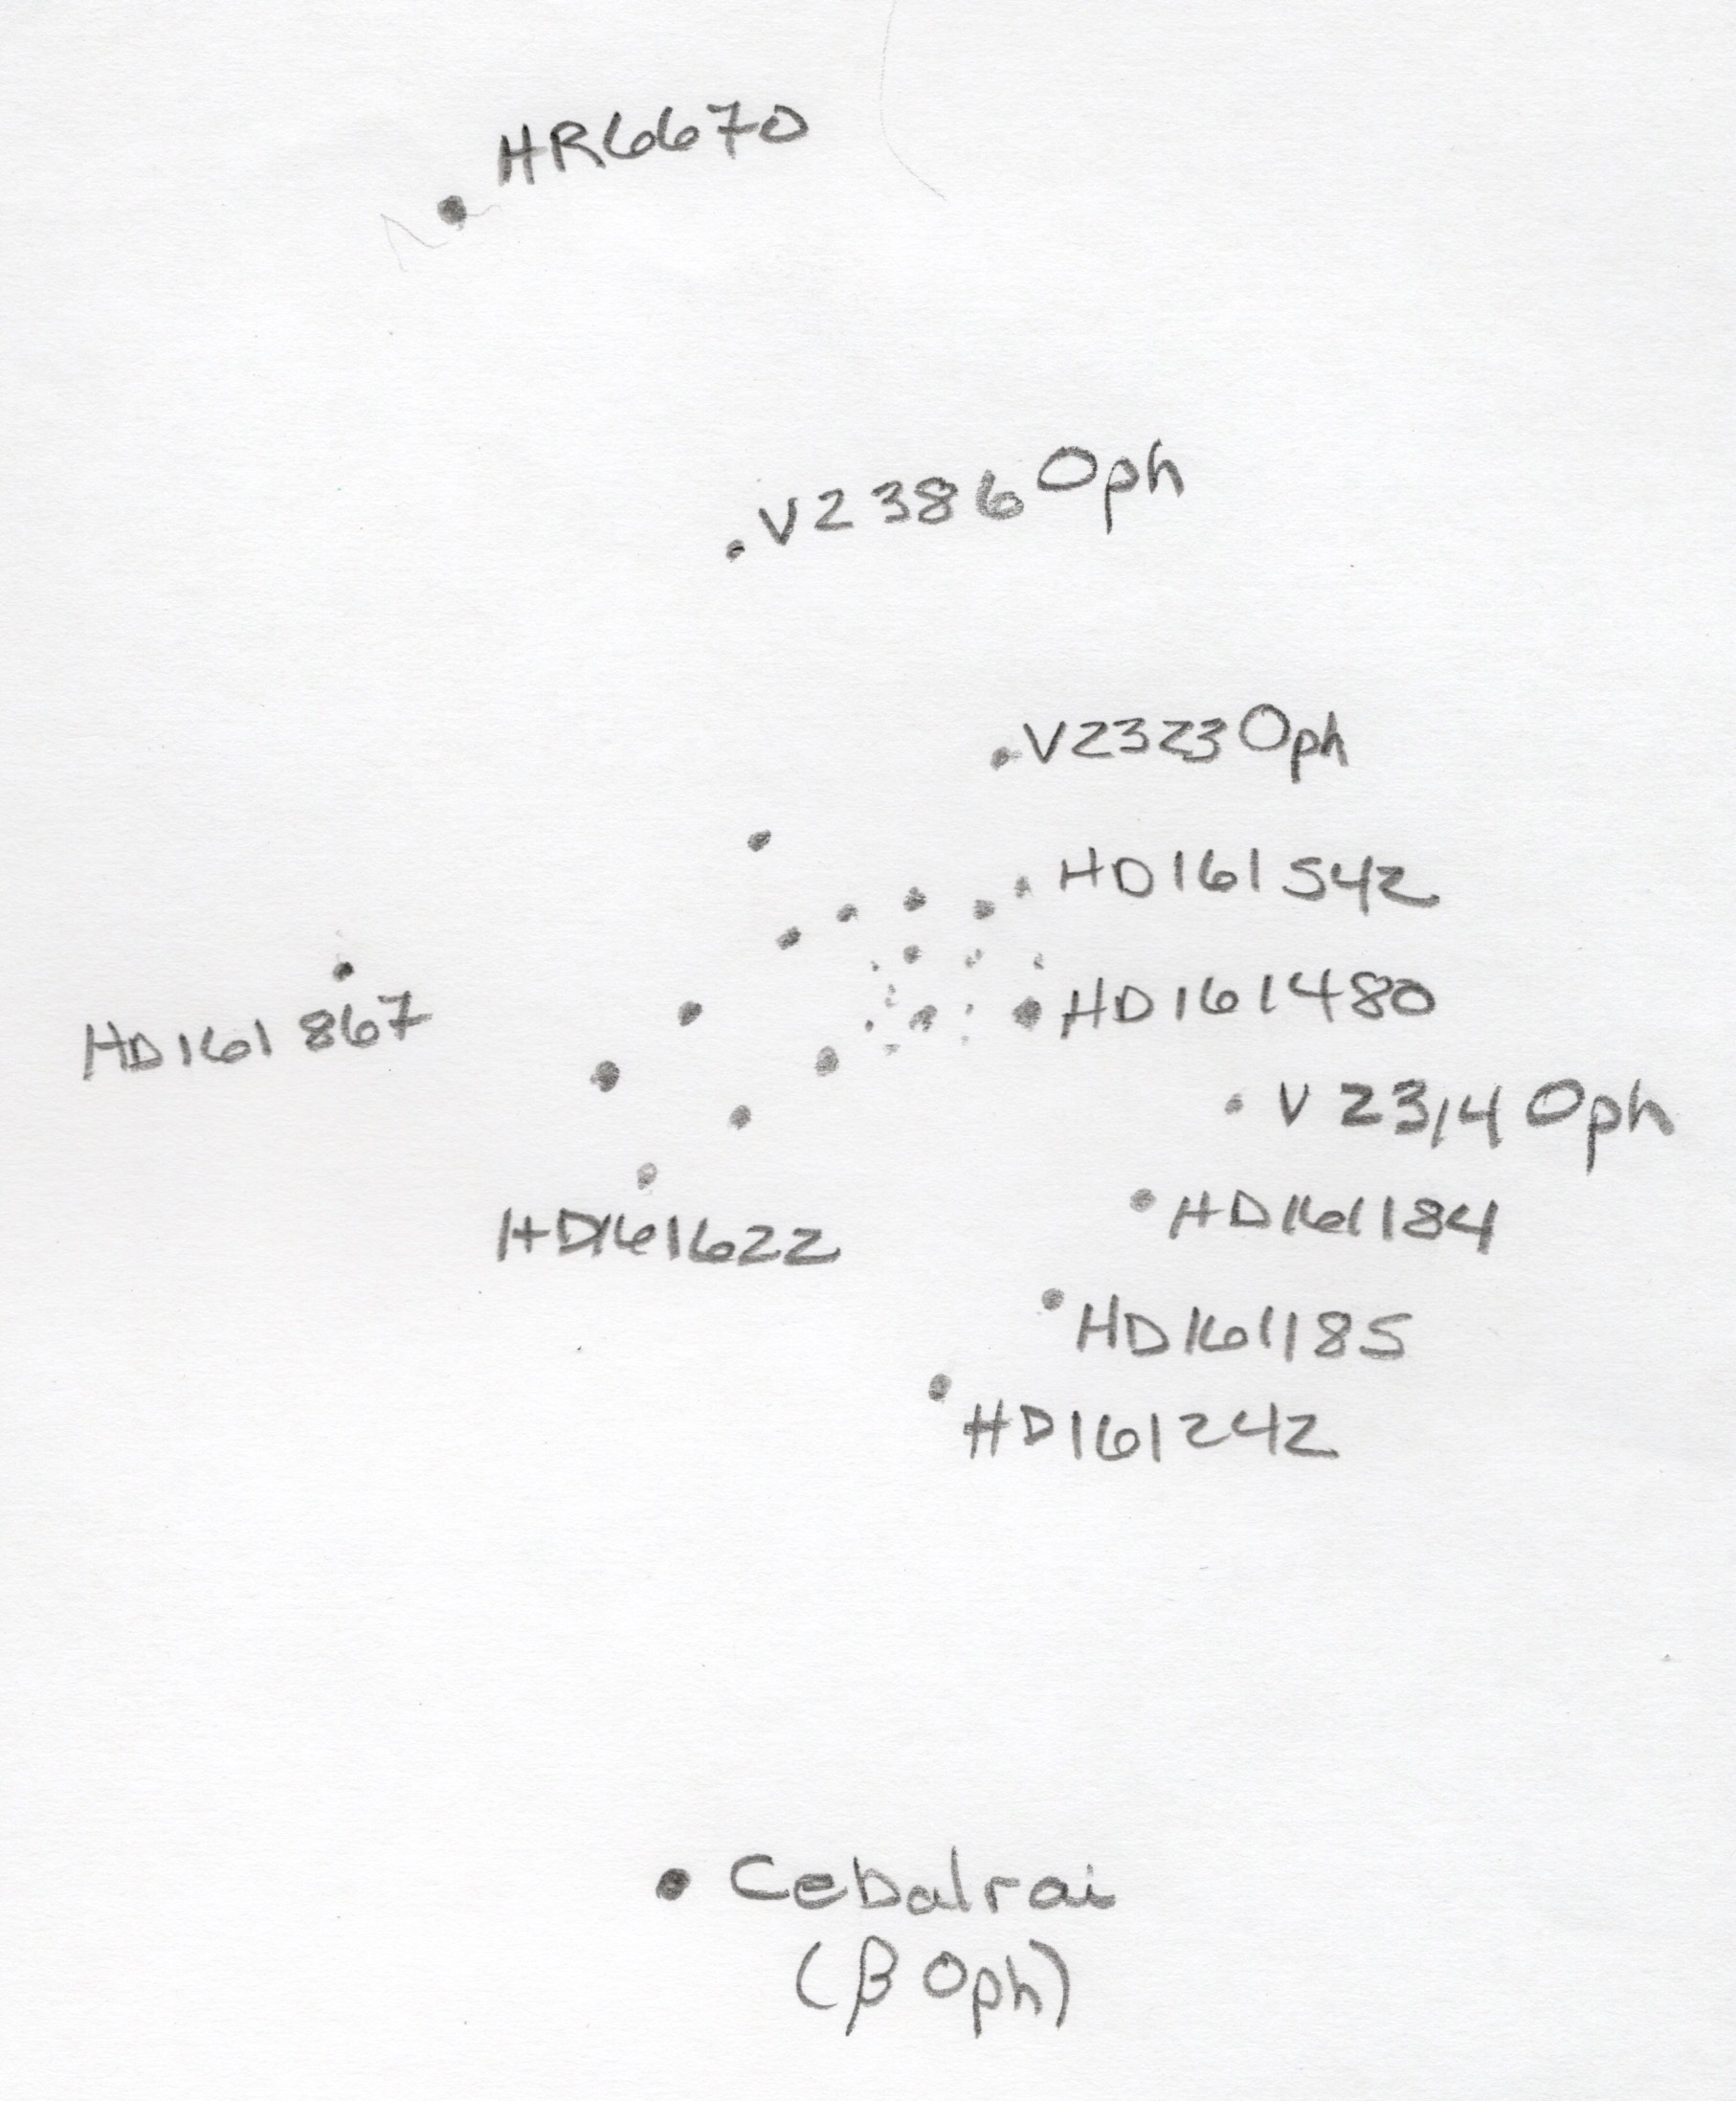 HR6670
V2386 Oph
V2323 Oph
HD161542
HD161480
HD161867
V2314 Oph
HD161184
HD161622
HD161185
HD161242
Cebalrai
(β Oph)